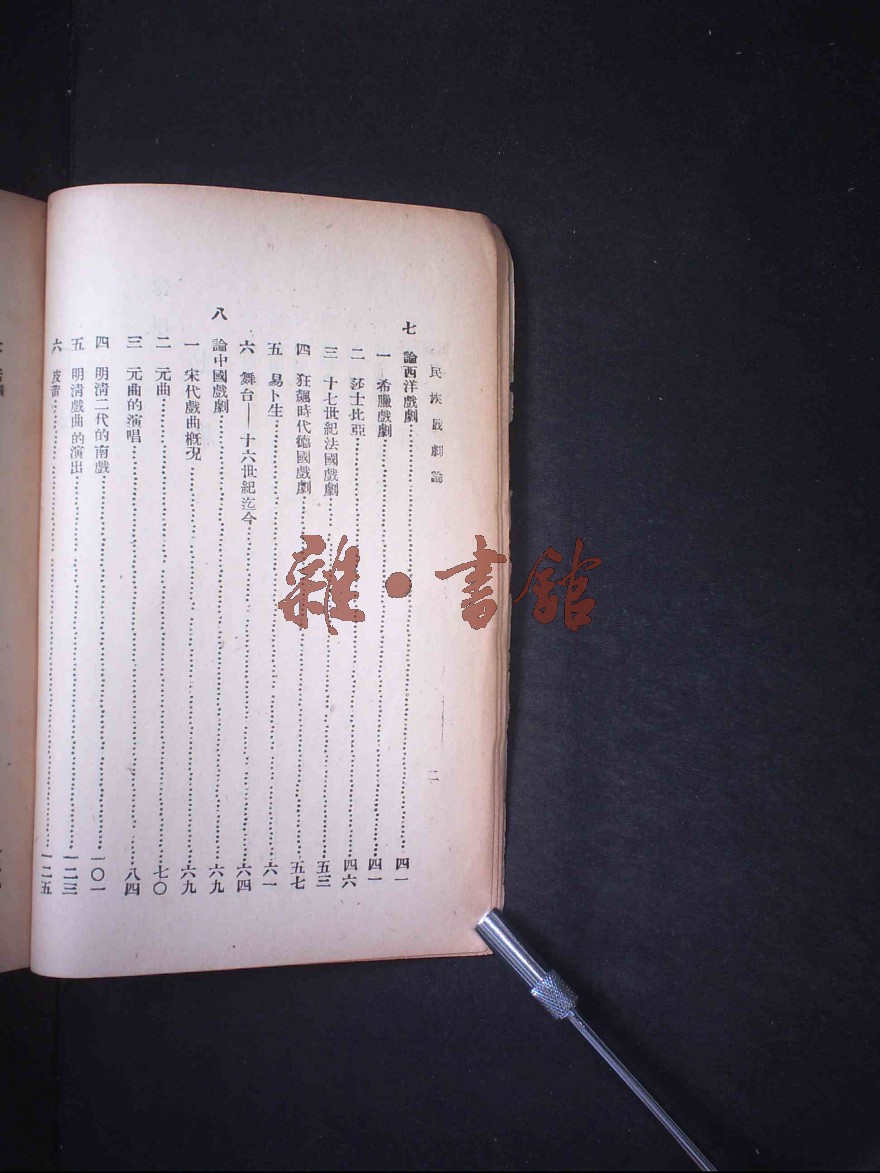 民族戲劇論
二
七 論西洋戲劇……四一
一 希臘戲劇……四一
二 莎士比亞……四六
三 十七世紀法國戲劇……五三
四 狂飆時代德國戲劇……五七
五 易卜生……六一
六 舞台——十六世紀迄今……六四
八 論中國戲劇……六九
一 宋代戲曲概況……六九
二 元曲……七〇
三 元曲的演唱……八四
四 明清二代的南戲……一〇一
五 明清戲曲的演出……一二三
六 皮黃……一二五
雜·書館